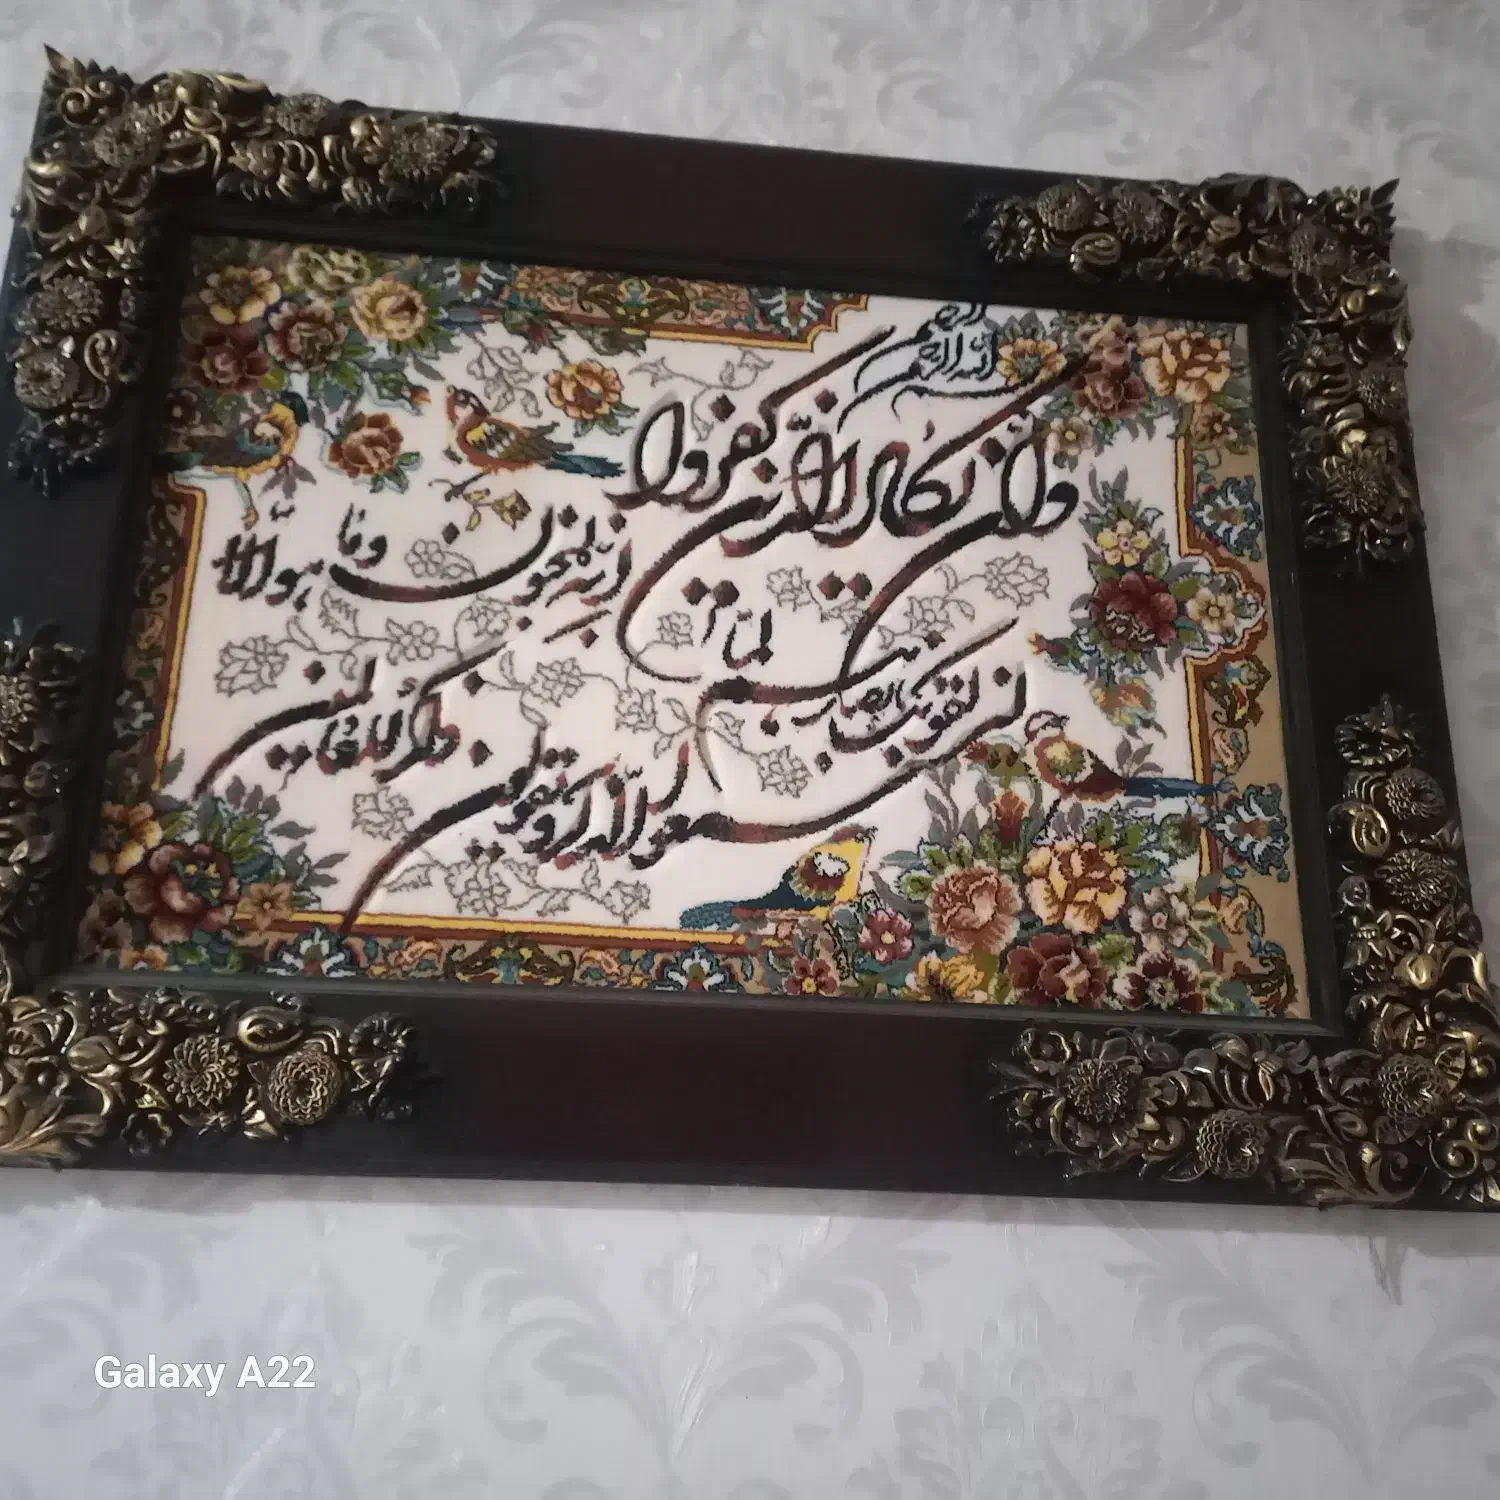 بسم الله الرحمن الرحیم
وان یکاد الذین کفروا
لیزلقونک بابصارهم لما
سمعوا الذکر و یقولون
انه لمجنون و ما هو الا
ذکر للعالمین
Galaxy A22